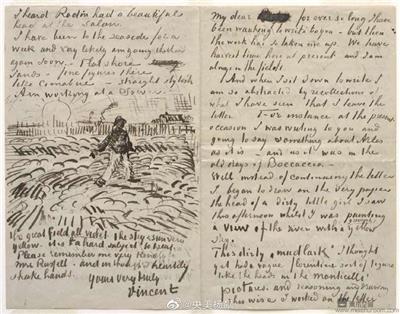 I heard Rodin had a beautiful
head at the Salon.
I have been to the seaside for a
week and very likely am going thither
again soon. – Flat shore
sands – fine figures there
like Cimabue – straight stylish
Am working at a Sower.
the great field all violet the sky & sun very
yellow. it is a hard subject to treat.
Please remember me very kindly to
Mrs Russell – and in thought I heartily
shake hands.
Yours very truly
Vincent
My dear for ever so long I have
been wanting to write to you – but then
the work has so taken me up. We have
harvest time here at present and I am
always in the fields.
And when I sit down to write I
am so abstracted by recollections of
what I have seen that I leave the
letter. For instance at the present
occasion I was writing to you and
going to say something about Arles
as it is – and as it was in the
old days of Boccaccio. –
Well instead of continuing the letter
I began to draw on the very paper
the head of a dirty little girl I saw
this afternoon whilst I was painting
a view of the river with a yellow
sky.
This dirty „mudlark" I thought
yet had a vague florentine sort of figure
like the heads in the monticelli
pictures. and reasoning and drawing
this wise I worked on the letter
@央美杨